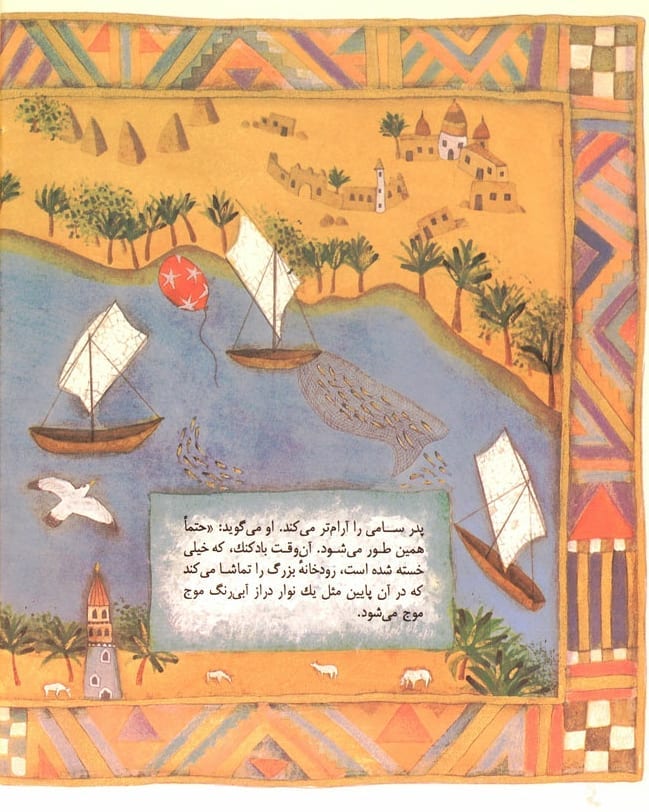 پدر سامی را آرام‌تر می‌کند. او می‌گوید: «حتماً
همین طور می‌شود. آن‌وقت بادکنك، که خیلی
خسته شده است، رودخانهٔ بزرگ را تماشا می‌کند
که در آن پایین مثل یك نوار دراز آبی‌رنگ موج
موج می‌شود.